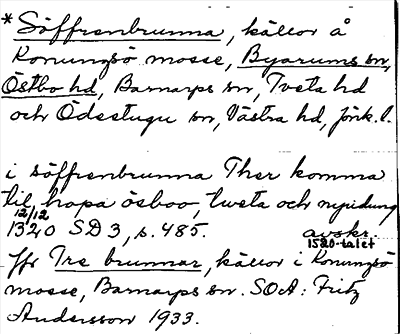 * Söffrenbrunna, källor å
Konungsö mosse, Byarums sn,
Östbo hd, Barnarps sn, Tveta hd
och Ödestugu sn, Västra hd, Jönk.l.
i söffrenbrunna Ther komma
til hopa ösboo, tweta och nyridung
12/12
1320 SD 3, s. 485. avskr.
1520-talet
Jfr Tre brunnar, källor i Konungsö
mosse, Barnarps sn. SOA: Fritz
Andersson 1933.